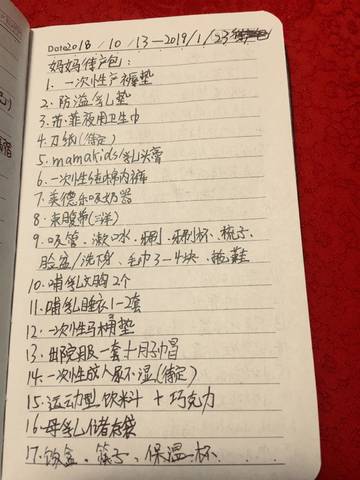 Date 2018 / 10 / 13 — 2019 / 1 / 23
妈妈待产包：
1. 一次性产褥垫
2. 防溢乳垫
3. 苏·菲夜用卫生巾
4. 刀纸(待定)
5. mamakids乳头膏
6. 一次性纯棉内裤
7. 美德乐吸奶器
8. 束腹带(三洋)
9. 吸管、漱口水、牙刷、牙刷杯、梳子、
脸盆/洗下身、毛巾3-4块、拖鞋
10. 哺乳文胸2个
11. 哺乳睡衣1-2套
12. 一次性马桶垫
13. 出院服一套+月子帽
14. 一次性成人尿不湿(待定)
15. 运动型饮料 + 巧克力
16. 母乳储存袋
17. 饭盒、筷子、保温杯